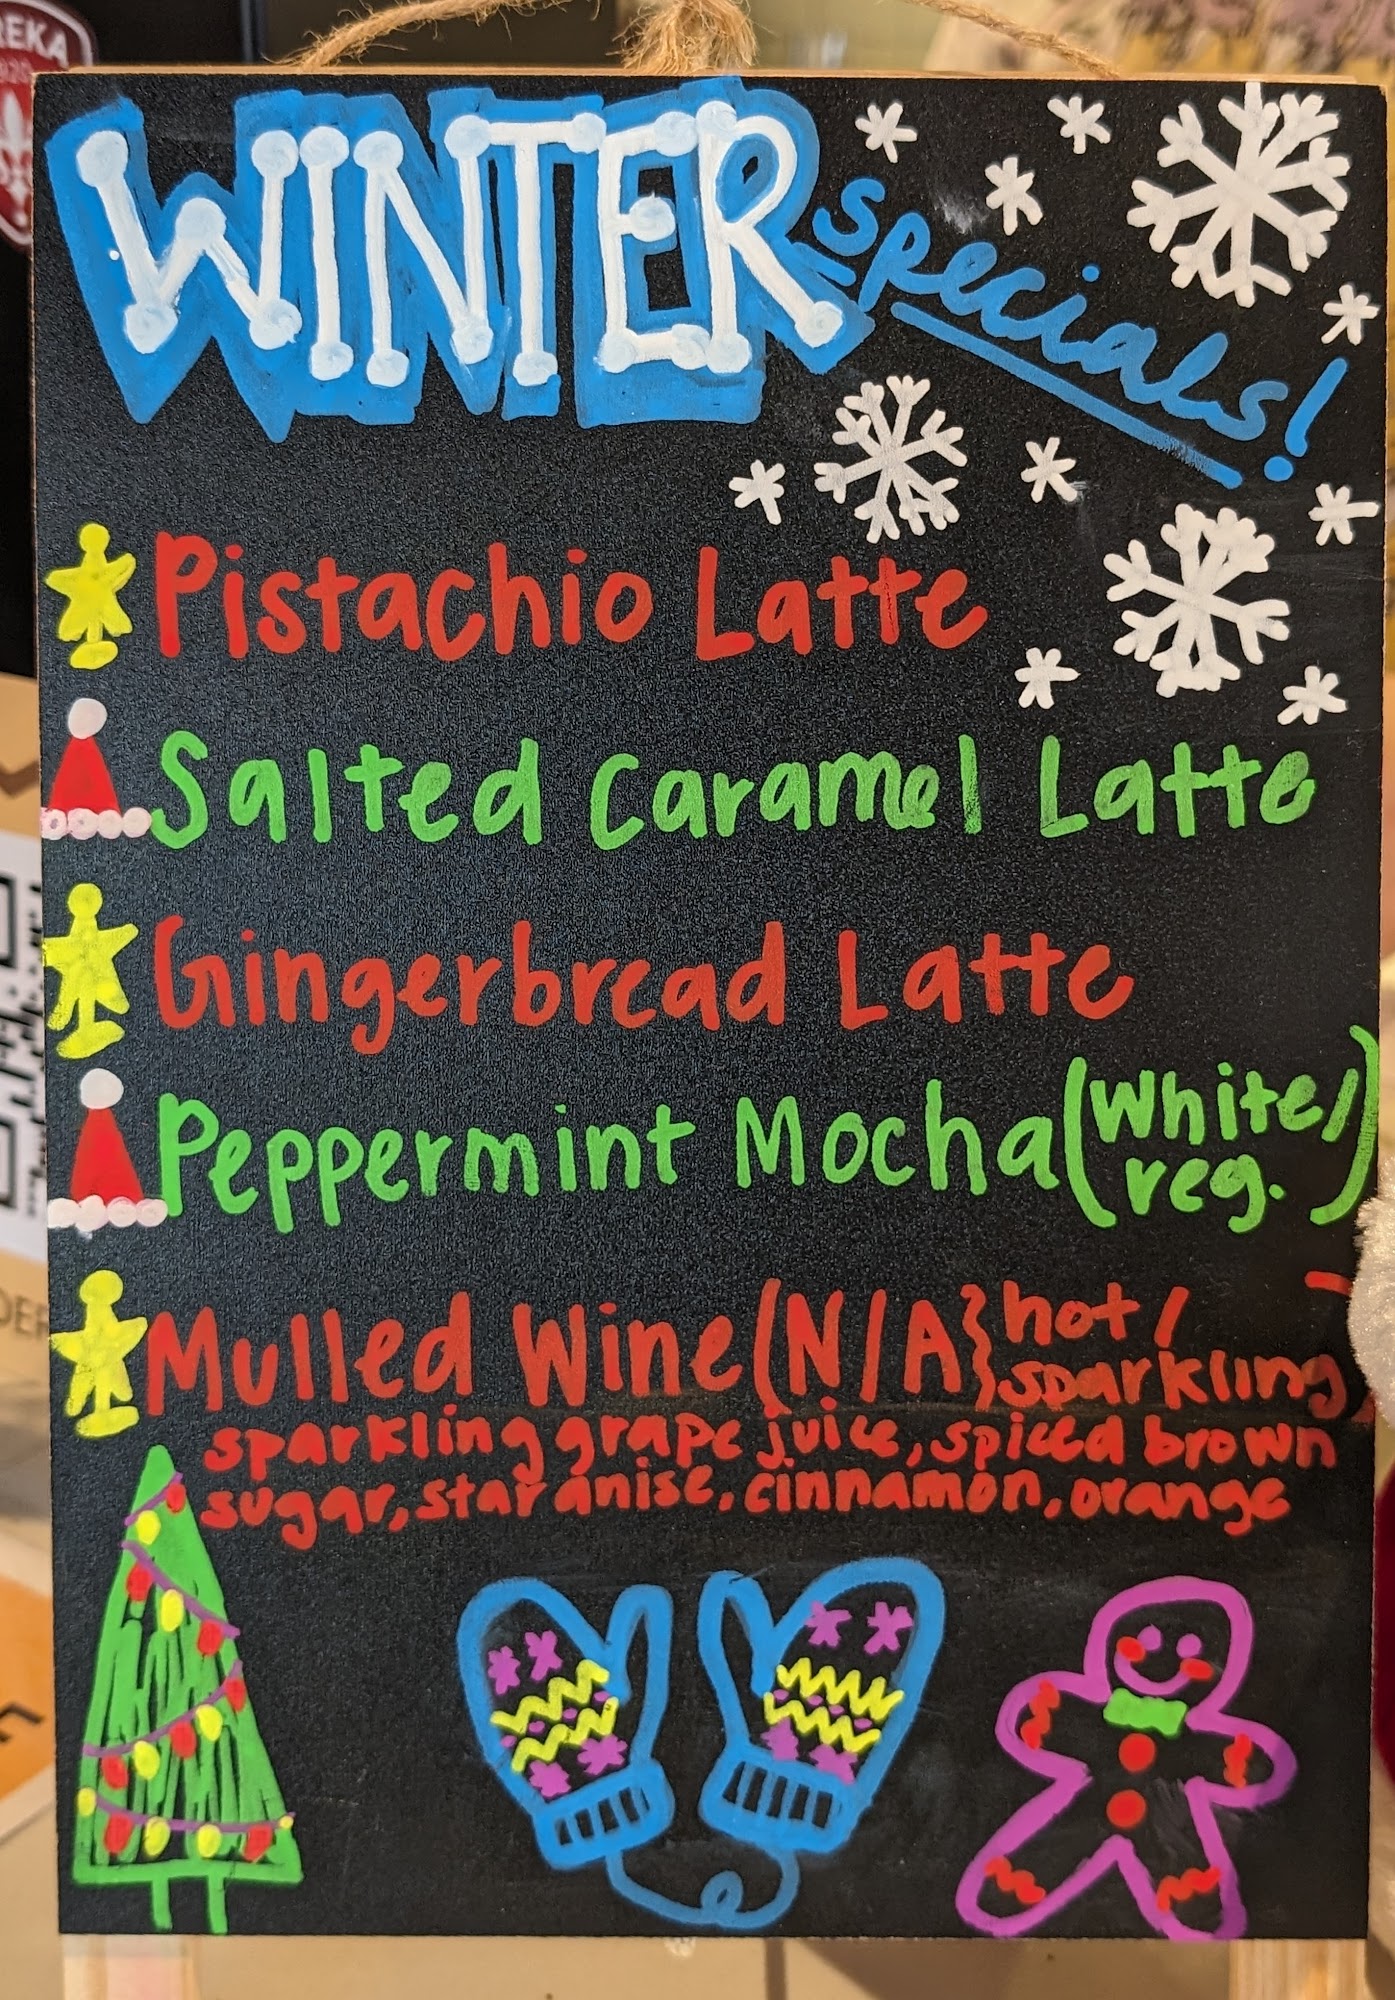 WINTER
specials!
Pistachio Latte
Salted Caramel Latte
Gingerbread Latte
Peppermint Mocha (White/
reg.)
Mulled Wine (N/A} hot/
sparkling)
sparkling grape juice, spiced brown
sugar, star anise, cinnamon, orange